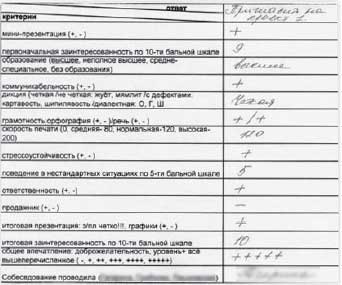 ответ
критерии
Приглашен на
проект 1
мини-презентация (+, - )
+
первоначальная заинтересованность по 10-ти бальной шкале
9
образование (высшее, неполное высшее, средне-
специальное, без образования)
высшее
коммуникабельность (+, - )
+
дикция (четкая /не четкая: жуёт, мямлит /с дефектами:
картавость, шипилявость /диалектная: О, Г, Ш
Четкая
грамотность:орфография (+, - )/речь (+, - )
+/+
скорость печати (0, средняя- 80, нормальная-120, высокая-
200)
120
стрессоустойчивость (+, - )
+
поведение в нестандартных ситуациях по 5-ти бальной шкале
5
ответственность (+, - )
+
продажник (+, - )
–
итоговая презентация: з/пл четко!!!, графики (+, - )
+
итоговая заинтересованность по 10-ти бальной шкале
10
общее впечатление: доброжелательность, уровень+ все
вышеперечисленное ( -, +, ++, +++, ++++, +++++)
+++++
Собеседование проводила (